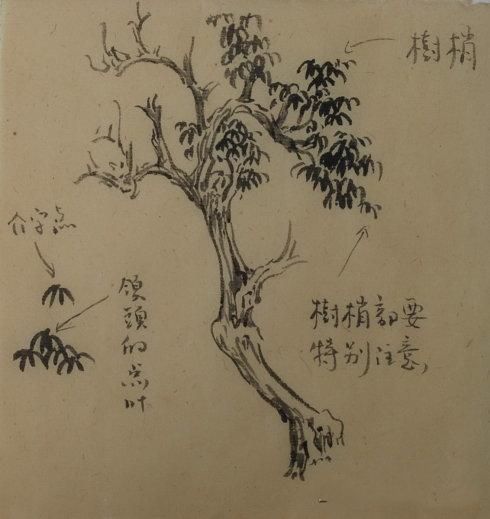 樹梢
介字点
領頭的点叶
樹梢部要
特别注意